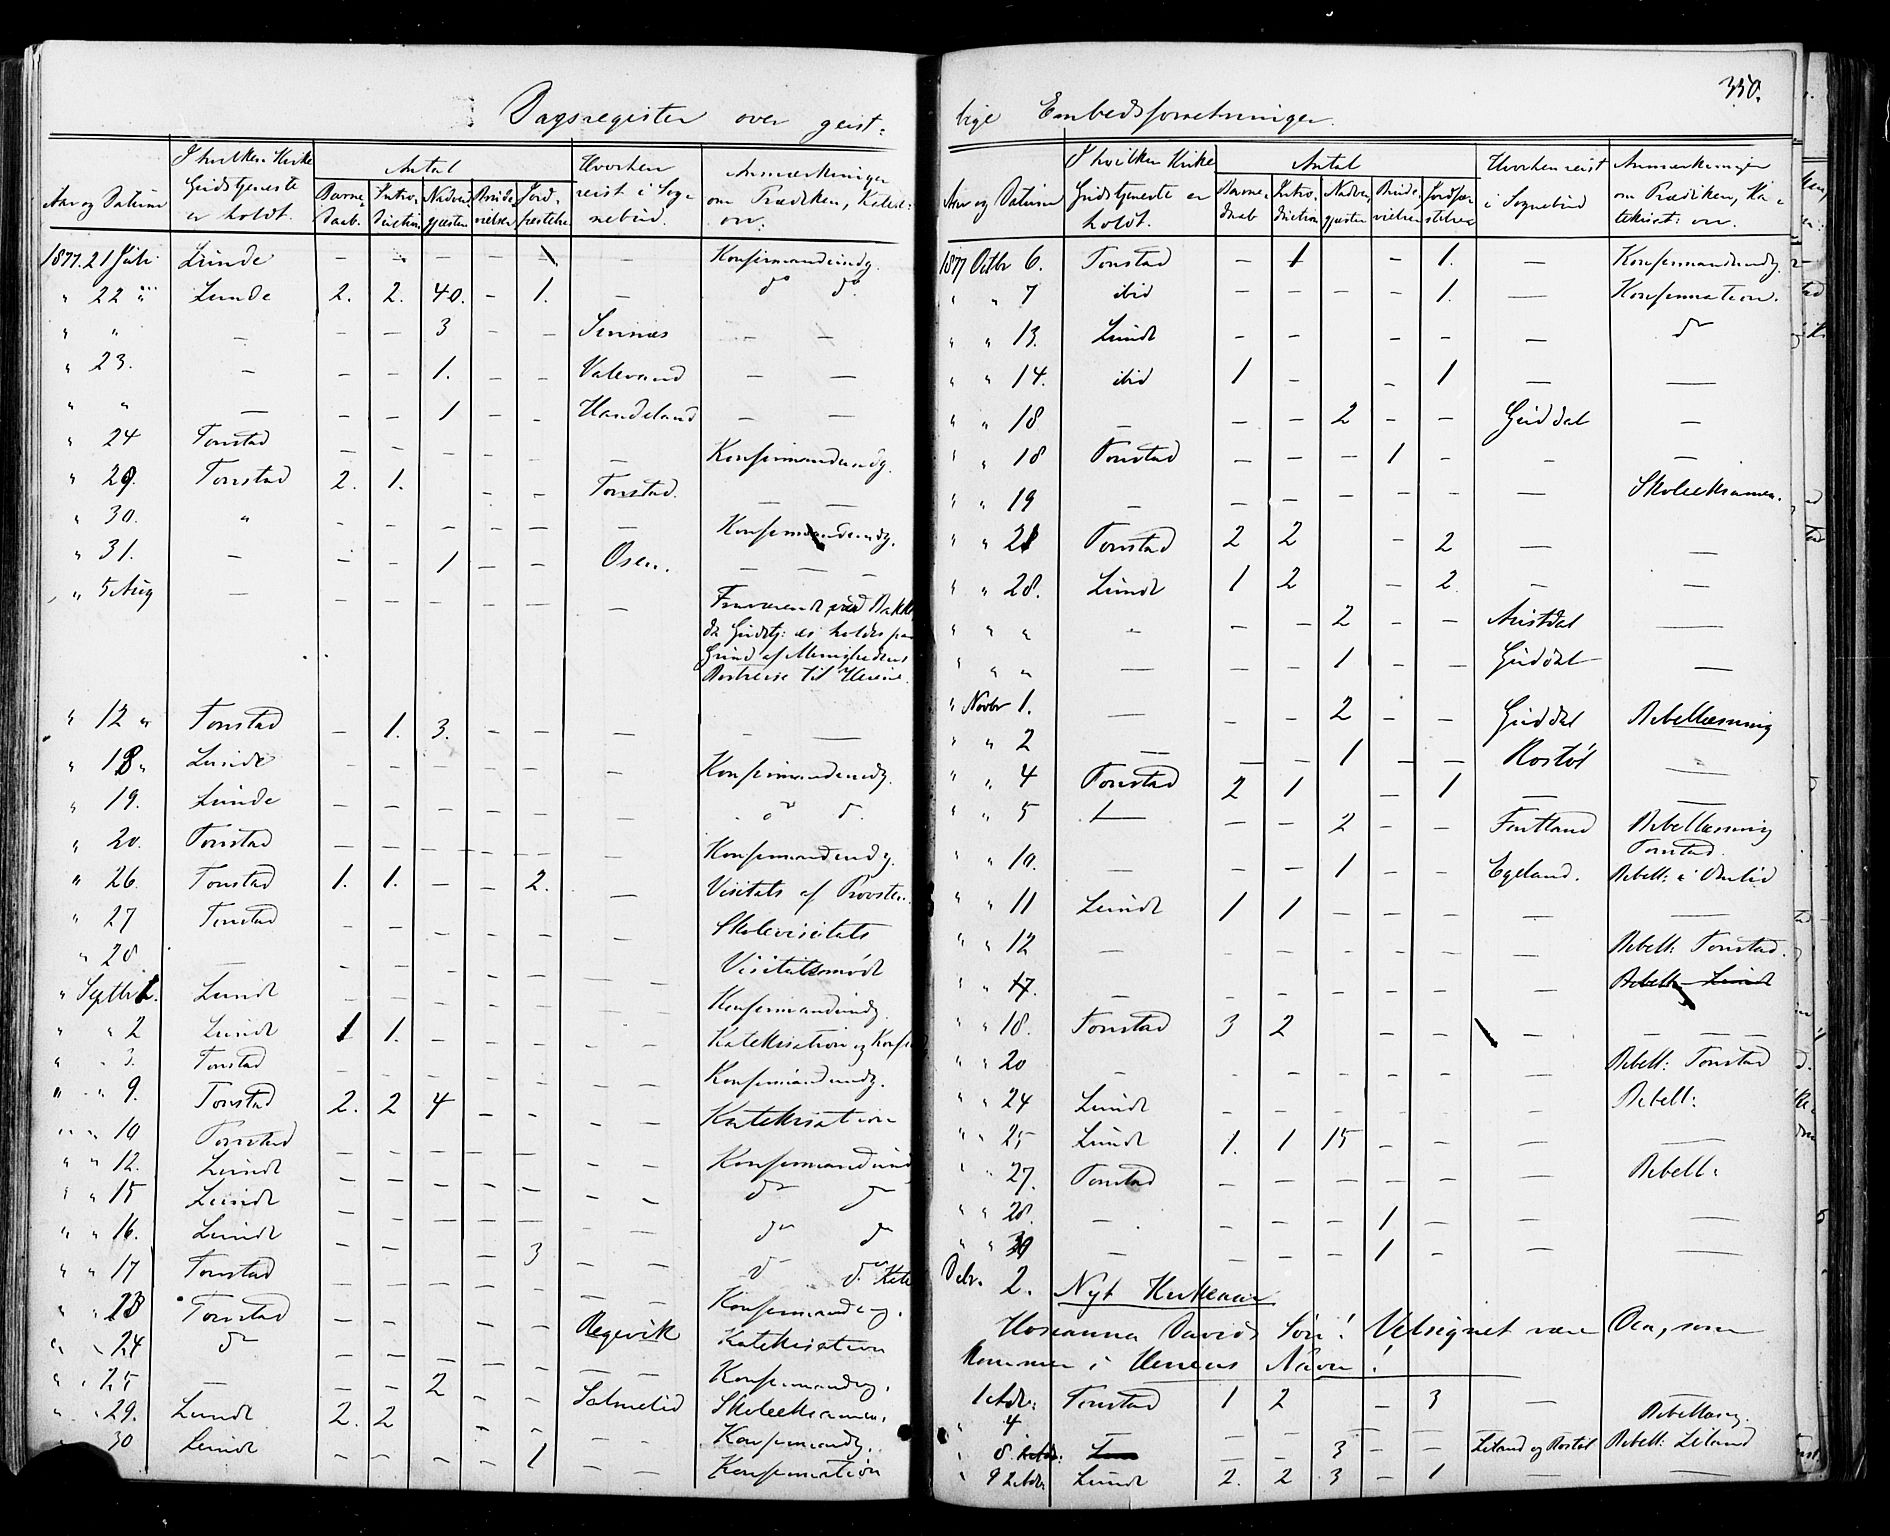 Dagsregister over geist:
Aar og Datum | I hvilken Kirke Gudstjeneste er holdt. | Antal | Barne Daab. | Intro Duction | Nadver gjæster | Brude vielser | Jord festelse | Hvorhen reist i Sog nebud. | Anmærkninger om Prædiken, Katek: ov:
1877. 21 Juli | Lunde | – | – | – | – | 1 | | Konfirmandundg.
" 22 " | Lunde | 2. | 2. | 40. | – | 1. | – | do do
" " | – | – | – | 3 | – | – | Sinnes | – –
" 23. | – | – | – | 1. | – | – | Valevand | – –
" " | – | – | – | 1 | – | – | Handeland | – –
" 24 | Tonstad | – | – | – | – | – | – | Konfirmandundg.
" 29. | Tonstad | 2. | 1. | | – | – | Tonstad. | – –
" 30. | " | – | – | – | – | – | – | Konfirmandundg.
" 31. | – | – | – | 1 | – | – | Osen. | – – –
" 5 Aug | – | – | – | – | – | – | – | Fraværende ved Bakke,
da Gudstj: ei holdes paa
Grund af Menighedens
" 12 " | Tonstad | – | 1. | 3. | – | – | – | – –
" 18 " | Lunde | – | – | – | – | – | – | Konfirmandundg.
" 19. | Lunde | – | – | – | – | – | – | do do
" 20. | Tonstad | – | – | – | – | – | – | Konfirmandundg.
" 26. | Tonstad | 1. | 1. | – | – | 2. | – | Visitats af Provsten.
" 27 | Tonstad | – | – | – | – | – | – | Skolevisitats
" 28 | – | – | – | – | – | – | – | Visitatsmødt
" Septbr 1. | Lundt | – | – | – | – | – | – | Konfirmandundg.
" " 2 | Lundt | 1 | 1. | – | – | – | – | Katekisation og Konfi
" " 3. | Tonstad | – | – | – | – | – | – | Konfirmandundg.
" " 9. | Tonstad | 2. | 2 | 4 | – | – | – | Katekisation
" " 10 | Tonstad | – | – | – | – | – | – | Konfirmandund
" " 12. | Lundt | – | – | – | – | – | – | do do
" " 15 | Lundt | – | – | – | – | – | – | do do
" " 16. | Lundt | – | – | – | – | 3 | – | do do Kate
" " 17 | Tonstad | – | – | – | – | – | – | Konfirmandug.
" " 23 | Tonstad | – | – | – | – | – | Regevik | Katekisation
" " 24 | do | – | – | – | – | – | – | Konfirmandug.
" " 25 | – | – | – | 2 | – | – | Salmelid | Skoleeksamen.
" " 29. | Lundt | 2. | 2 | | – | – | – | Konfirmandg.
" " 30 | Lundt | – | – | – | – | 1 | – | Konfirmation
350.
lige Embedsforretninger.
Aar og Datum | I hvilken Kirke Gudstjeneste er holdt. | Antal | Barne daab | Intro duction | Nadver gjæster | Brude vielser | Jordfæ stelse | Hvorhen reist i Sognebud | Anmærkninger om Prædiken, Ka- tekisat: ov.
1877 Octbr 6. | Tonstad | – | 1 | – | – | 1. | – | Konfirmandundg.
" " 7 | ibid | – | – | – | – | 1. | – | Konfirmation.
" " 13. | Lundt | – | – | | – | – | – | do
" " 14. | ibid | 1 | – | | – | 1 | – | –
" " 18 | – | – | – | 2 | – | – | Guddal | –
" " 18 | Tonstad | – | – | – | 1 | – | – | –
" " 19 | – | – | – | – | – | – | – | Skoleeksamen.
" " 21 | Tonstad | 2 | 2 | | – | 2 | – | –
" " 28. | Lundt | 1 | 2 | | – | 2. | – | –
" " " | – | – | – | 2 | – | – | Austdal | –
" " " | – | – | – | 1 | – | – | Guddal | –
" Novbr 1. | – | – | – | 2 | – | – | Guddal | Bibellæsning
" " 2 | – | – | – | 1 | – | – | Rostøl | –
" " 4 | Tonstad | 2 | 1 | | – | 1 | – | –
" " 5 | – | – | – | 2 | – | – | Fintland | Bibellæsning
Tonstad.
" " 10. | – | – | – | 1 | – | – | Egeland. | Bibell: i Omlid
" " 11 | Lundt | 1 | 1 | – | – | – | – | –
" " 12 | – | – | – | – | – | – | – | Bibell: Tonstad.
" " 17. | – | – | – | – | – | – | – | Bibell: Lundt
" " 18. | Tonstad | 3 | 2 | | – | – | – | –
" " 20 | – | – | – | – | – | – | – | Bibell: Tonstad
" " 24 | Lundt | – | – | – | – | – | – | Bibell:
" " 25 | Lundt | 1. | 1 | 15 | – | – | – | –
" " 27. | Tonstad | – | – | – | – | – | – | Bibell:
" " 28. | – | – | – | – | 1 | – | – | –
" " 30 | – | – | – | – | 1 | – | – | –
Debr. 2. Nyt Kirkeaar
Hosianna Davids Søn! Velsignet være Den, som
kommer i Herrens Navn!
1 Adv: | Tonstad | 1 | 2 | | – | 3 | –
" 4 | – | – | – | – | – | – | – | Bibellæsg.
" 8. | – | – | – | 3 | – | – | Liland og Rostøl | Bibell: Liland
" 9 2 Adv | Lundt | 2. | 2 | 3 | – | 1 | – | –